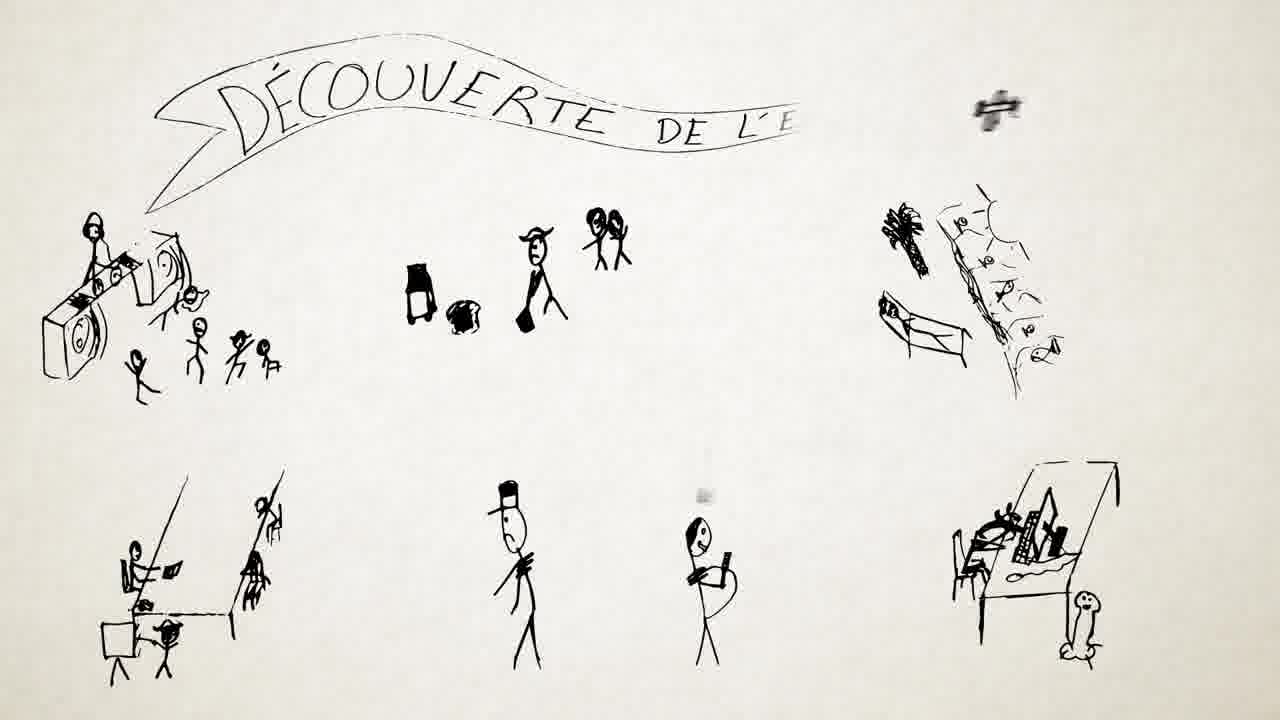 DÉCOUVERTE DE L'E